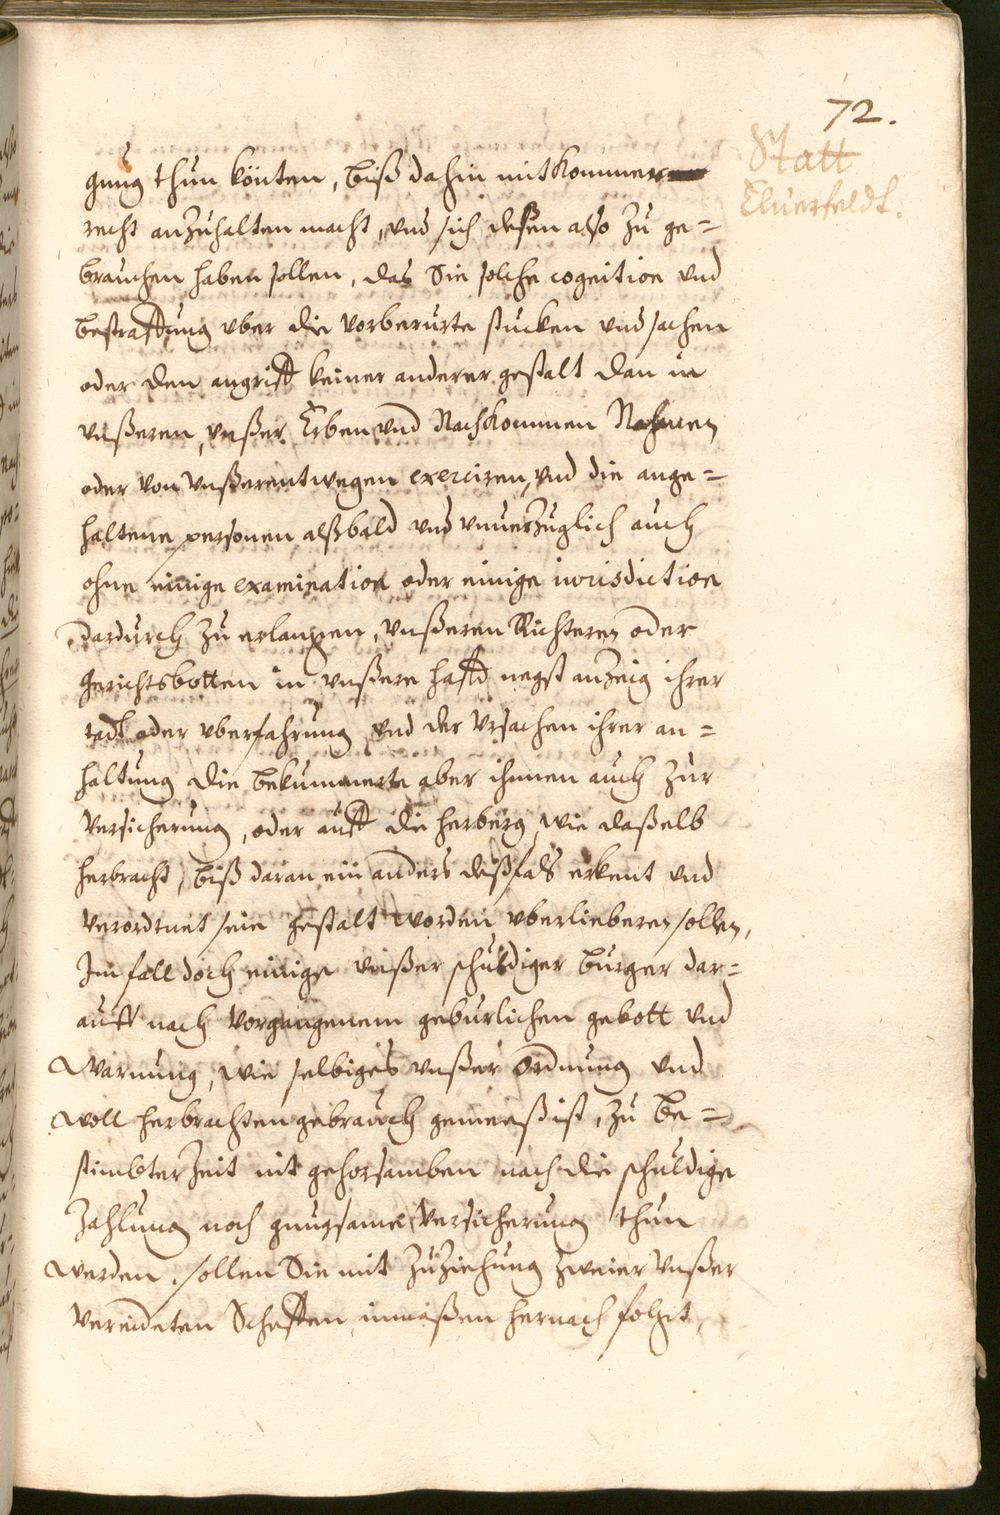 72.
Statt
Eluerfeldt.
gung thun könten, biß dahin mit Kommer
recht anzuhalten macht, vnd sich deßen also zu ge=
brauchen haben sollen, das Sie solche cognition vnd
bestraffung vber die vorberurte stucken vnd sachen
oder den angriff keiner anderer gestalt dan in
vnßeren, vnßer Erben vnd Nachkommen Nahmen
oder von vnßerentwegen exerciren, vnd die ange=
haltene personen alßbald vnd vnuerzuglich auch
ohne einige examination oder einige iurisdiction
dardurch zu erlangen, vnßeren Richteren oder
gerichtsbotten in vnßere hafft negst anzeig ihrer
oder vberfahrung vnd der vrsachen ihrer an=
haltung die bekummerte aber ihnnen auch zur
versicherung, oder auff die herberg, wie daßelb
herbracht, biß daran ein anders deßfals erkent vnd
verordtnet sein gestalt worden vberlieberen sollen,
Im fall doch einige vnßer schuldiger burger dar=
auff nach vorgangenem geburlichen gebott vnd
warnung, wie selbiges vnßer ordnung vnd
woll herbrachten gebrauch gemeeß ist, zu be=
stimbter Zeit nit gehorsamben noch die schuldige
Zahlung noch gnugsame versicherung thun
werden, sollen Sie mit zuziehung zweier vnßer
vereideten Scheffen inmaßen hernach folgt,